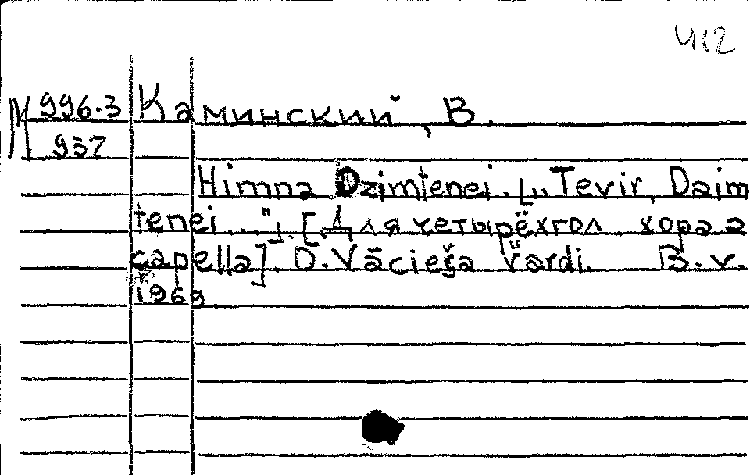 412
М 996-3
937
Каминский, В.
Himna Dzimtenei. [„Tevir, Daim
tenei..."]. [Для четырёхгол. хора a
capella]. O. Vācieša vārdi. B.v.
1969